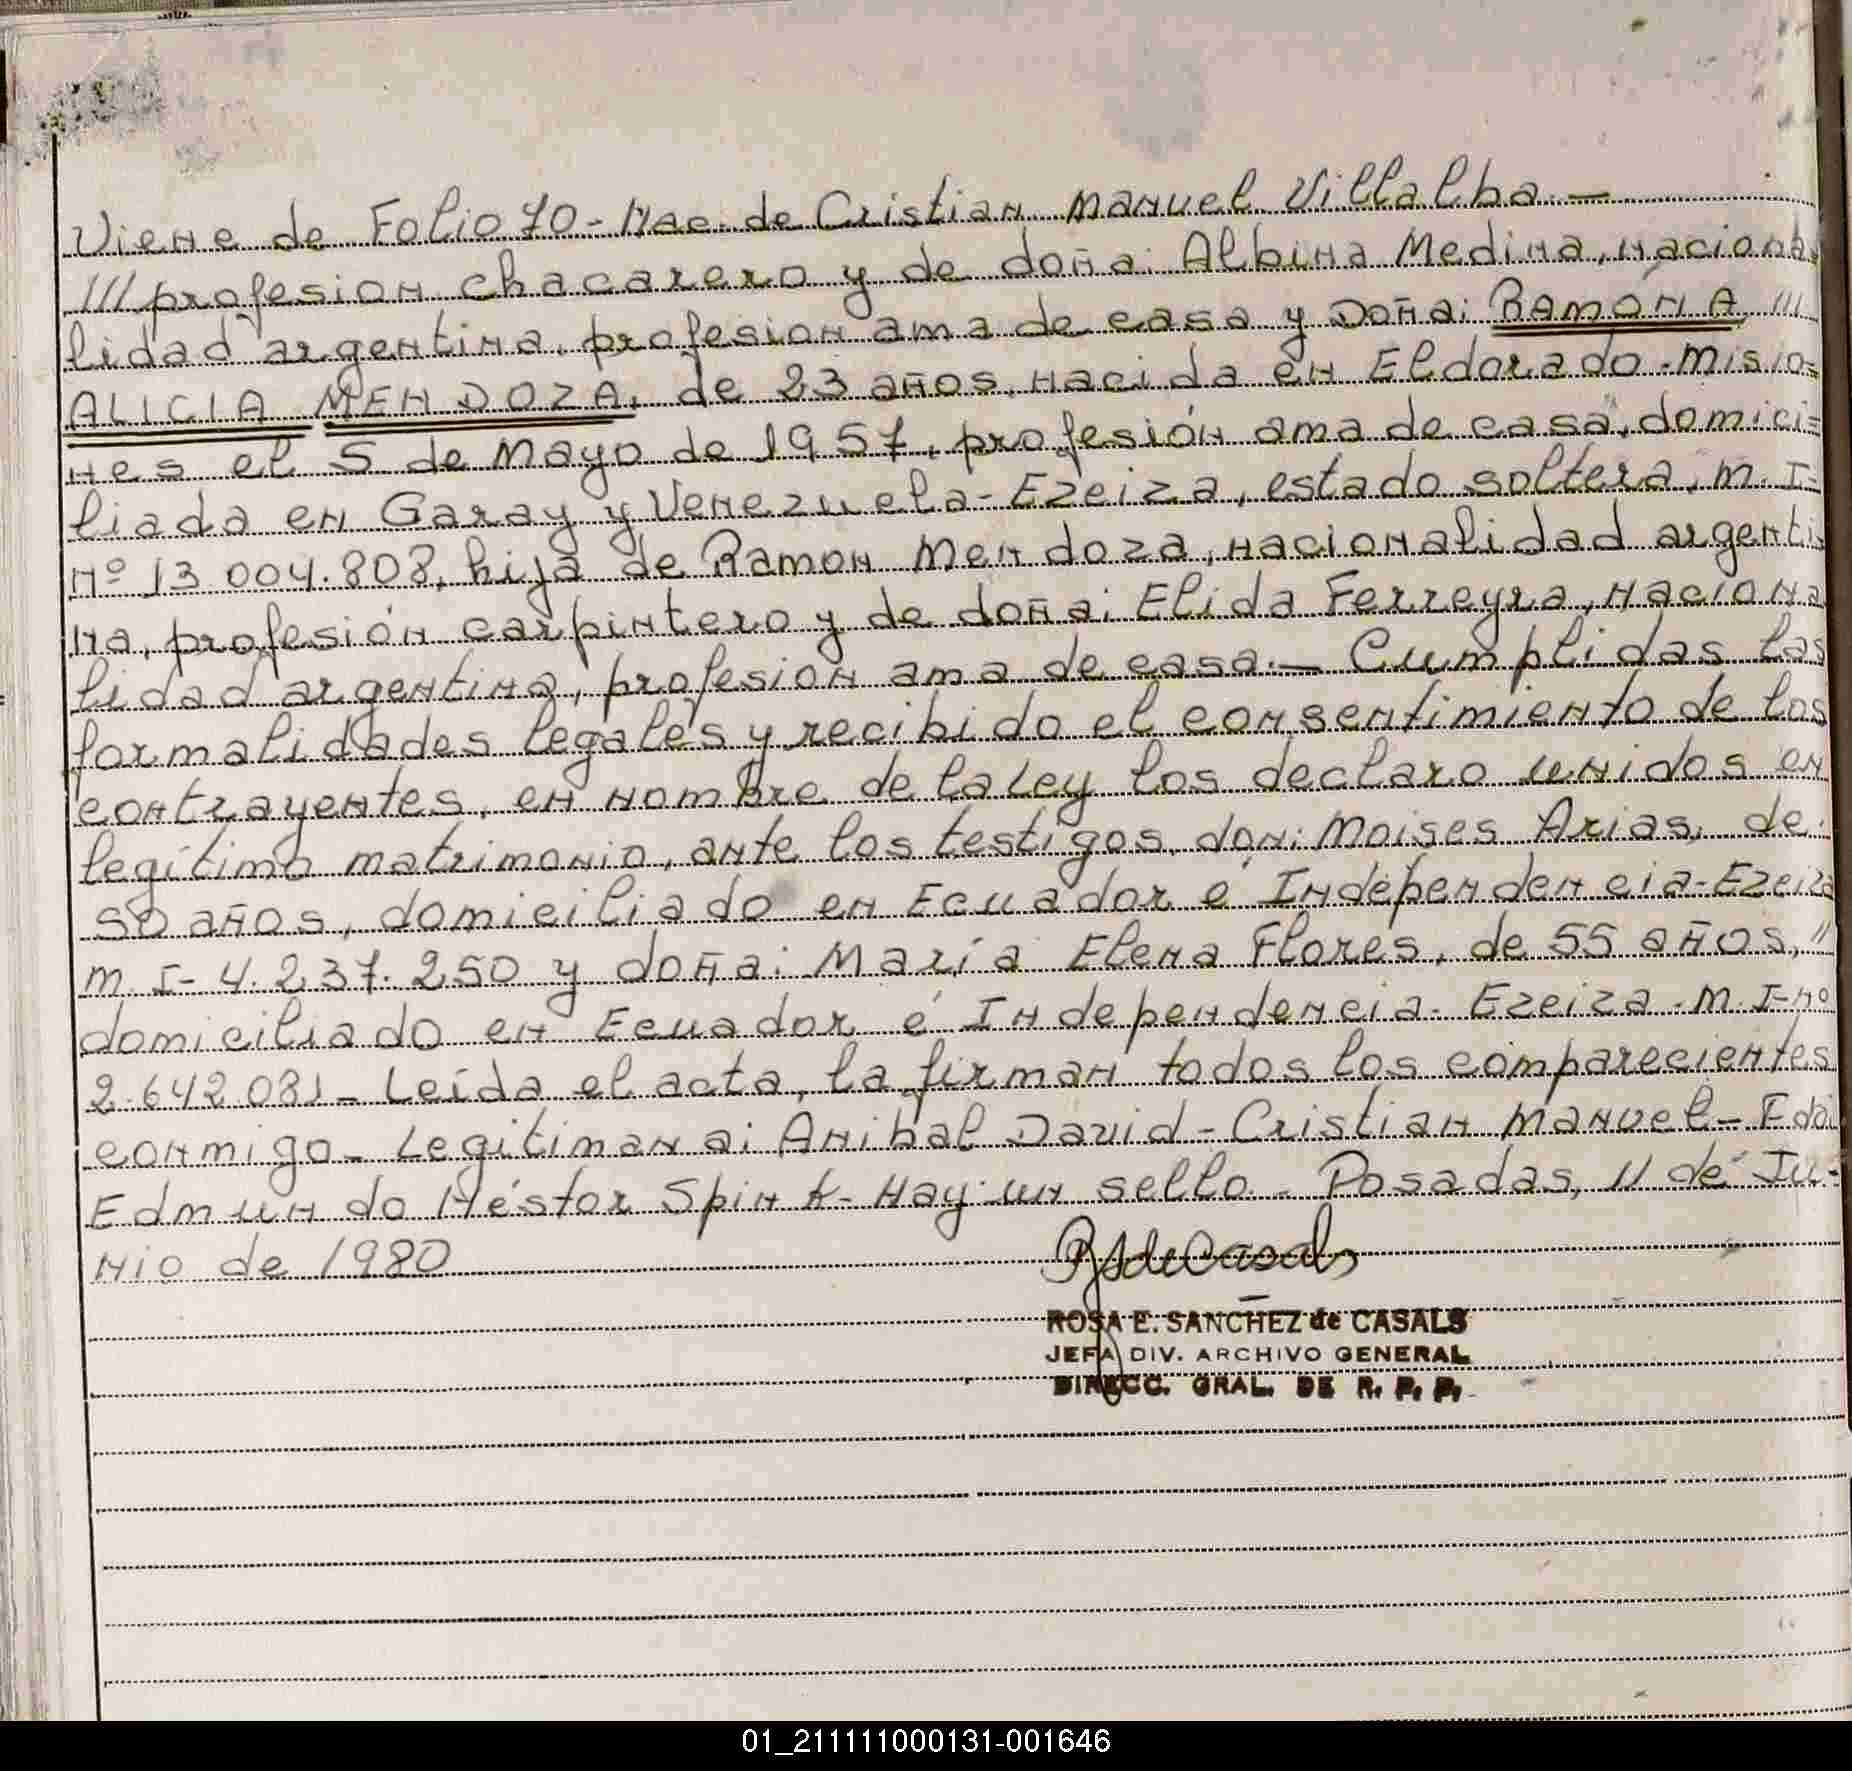 Viene de Folio 70 - Nac. de Cristian Manuel Villalba. —
/// profesion chacarero y de doña: Albina Medina, naciona
lidad argentina, profesion ama de casa y Doña: RAMONA ///
ALICIA MENDOZA, de 23 años, nacida en Eldorado - Misio=
nes el 5 de Mayo de 1957, profesión ama de casa, domici=
liada en Garay y Venezuela - Ezeiza, estado soltera, M. I-
Nº 13.004.808, hija de Ramon Mendoza, nacionalidad argenti
na, profesión carpintero y de doña: Elida Ferreyra, naciona
lidad argentina, profesion ama de casa. — Cumplidas las
formalidades legales y recibido el consentimiento de los
contrayentes, en nombre de la Ley los declaro unidos en
legítimo matrimonio, ante los testigos, don: Moises Arias, de
50 años, domiciliado en Ecuador é Independencia - Ezeiza
M. I - 4.237.250 y doña: María Elena Flores, de 55 años, //
domiciliado en Ecuador é Independencia - Ezeiza - M. I - Nº
2.642.081 - Leída el acta, la firman todos los comparecientes
conmigo - Legitiman a: Anibal David - Cristian Manuel - Fdo:
Edmundo Héstor Spink - Hay: un sello. - Posadas, 11 de Ju-
nio de 1980
RSdeCasals
ROSA E. SANCHEZ de CASALS
JEFA DIV. ARCHIVO GENERAL
DIRECC. GRAL. DE R. P. P.
01_211111000131-001646